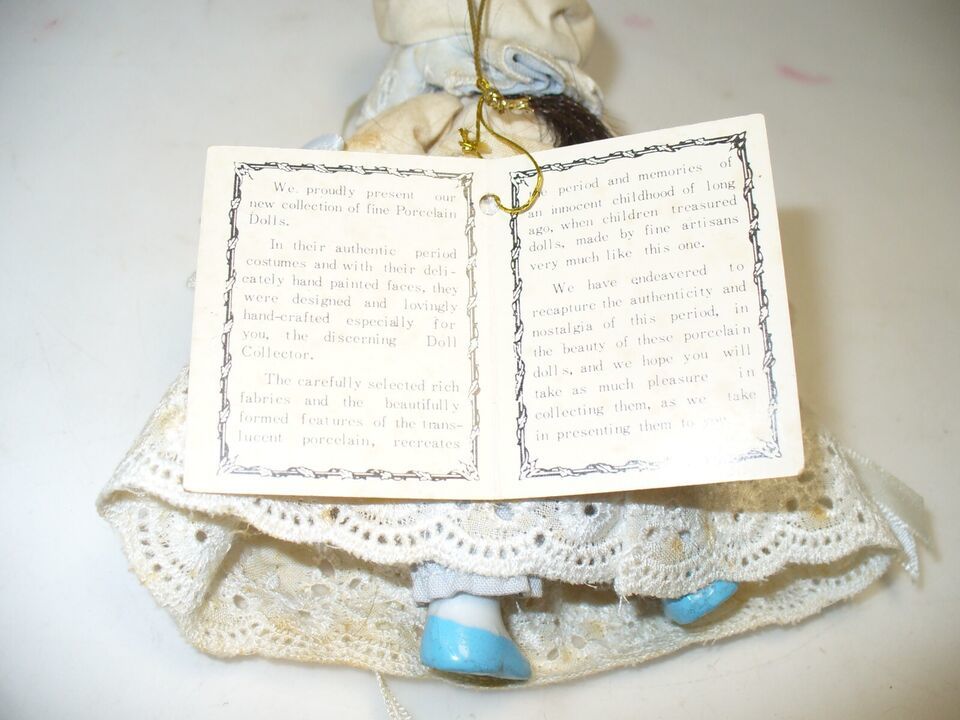 We proudly present our
new collection of fine Porcelain
Dolls.
In their authentic period
costumes and with their deli-
cately hand painted faces, they
were designed and lovingly
hand-crafted especially for
you, the discerning Doll
Collector.
The carefully selected rich
fabrics and the beautifully
formed features of the trans-
lucent porcelain, recreates
the period and memories of
an innocent childhood of long
ago, when children treasured
dolls, made by fine artisans
very much like this one.
We have endeavered to
recapture the authenticity and
nostalgia of this period, in
the beauty of these porcelain
dolls, and we hope you will
take as much pleasure in
collecting them, as we take
in presenting them to you.